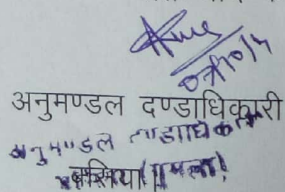 07/10/14
अनुमण्डल दण्डाधिकारी
अनुमण्डल दण्डाधिकारी
बसिया (गुमला)